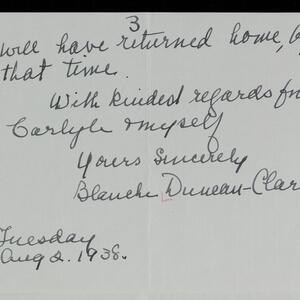 3
will have returned home, by
that time.
With kindest regards from
Carlyle & myself
Yours Sincerely
Blanche Duncan-Clar
Tuesday
Aug 2. 1938.